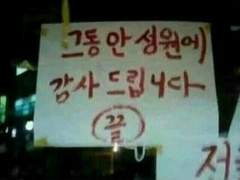 그동안 성원에
감사 드립니다
끝
전